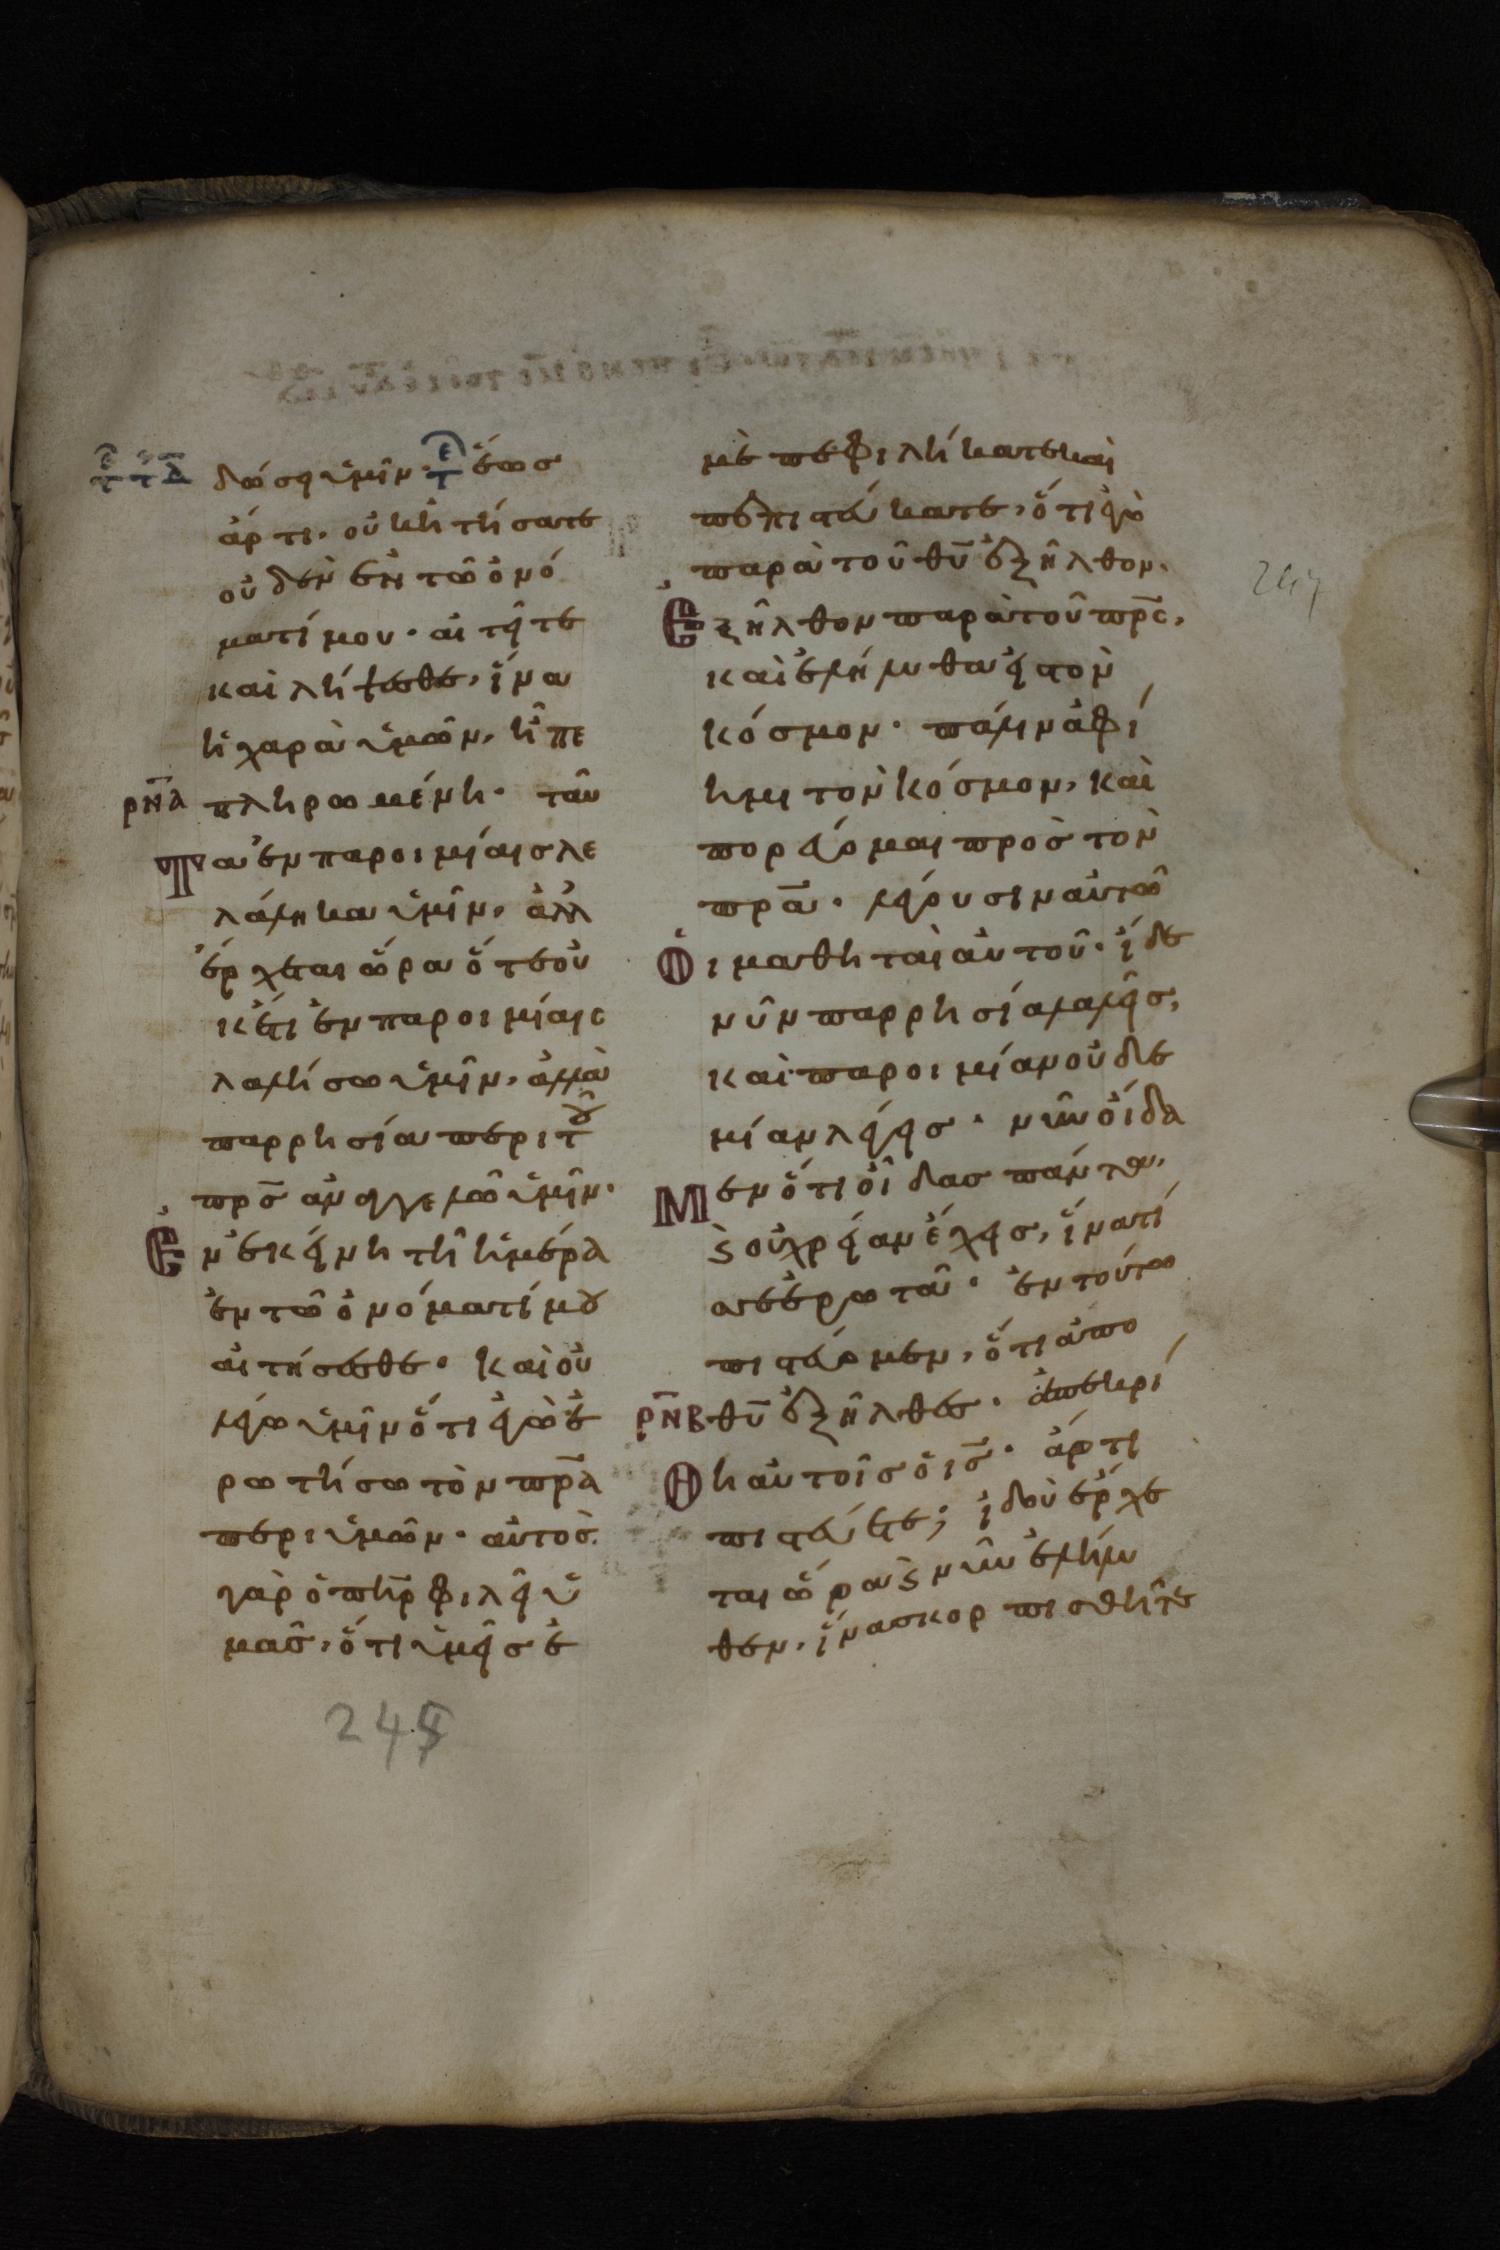 δώσει ὑμῖν· ἕως
ἄρτι, οὐκ ἠτήσατε
οὐδὲν ἐν τῶ ὀνό
ματί μου· αἰτεῖτε
καὶ λήψεσθε, ἵνα
ἡ χαρὰ ὑμῶν, ἦ πε
ρνα πληρωμένη· ταῦ
Τα ἐν παροιμίαις λε
λάληκα ὑμῖν, ἀλλ
ἔρχεται ὥρα ὅτε οὐ
κέτι ἐν παροιμίαις
λαλήσω ὑμῖν, ἀλλὰ
παρρησία περὶ τοῦ
πρς ἀναγγελῶ ὑμῖν·
Ἐν ἐκείνη τῆ ἡμέρα
ἐν τῶ ὀνόματί μου
αἰτήσεσθε· καὶ οὐ
λέγω ὑμῖν ὅτι ἐγὼ ἐ
ρωτήσω τὸν πρα
περι ὑμῶν· αὐτὸς
γὰρ ὁ πηρ φιλεῖ ὑ
μᾶς, ὅτι ὑμεῖς ἐ
μὲ πεφιλήκατε καὶ
πεπιστεύκατε, ὅτι ἐγὼ
παρὰ τοῦ θυ ἐξῆλθον.
Ἐξῆλθον παρὰ τοῦ πρς,
καὶ ἐλήλυθα εἰς τὸν
κόσμον· πάλιν ἀφί
ημι τὸν κόσμον, καὶ
πορεύομαι πρὸς τὸν
πρα· λέγουσιν αὐτῶ
Οἱ μαθηταὶ αὐτοῦ· ἴδε
νῦν παρρησία λαλεῖς,
καὶ παροιμίαν οὐδε
μίαν λέγεις· νῦν οἴδα
Μεν ὅτι οἶδας πάντα,
ϗ οὐ χρείαν ἔχεις, ἵνα τί
σε ἐρωτᾶ· ἐν τούτω
πιστεύομεν, ὅτι ἀπο
ρνβ θυ ἐξῆλθες· ἀπεκρί
Θη αὐτοῖς ὁ ις· ἄρτι
πιστεύετε; ἰδοὺ ἔρχε
ται ὥρα ϗ νῦν ἐλήλυ
θεν, ἵνα σκορπισθῆτε
247
245